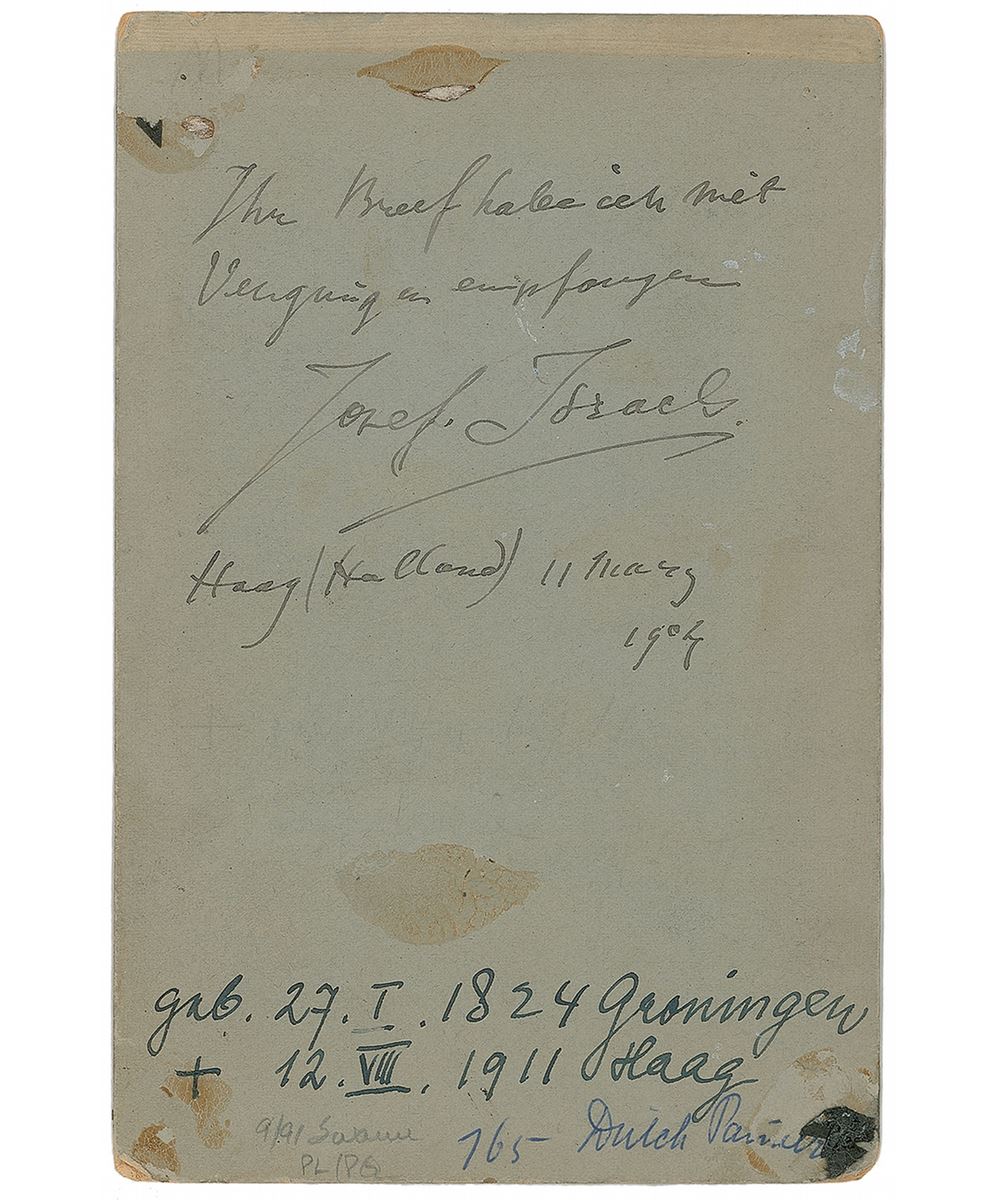 Ihr Breef habe ich mit
Vergnüg en empfangen
Jozef. Israels.
Haag (Holland) 11 Marz
geb. 27. I. 1824 Groningen
+ 12. VIII. 1911 Haag
765 Dutch Painter
9/91 
PL/PG